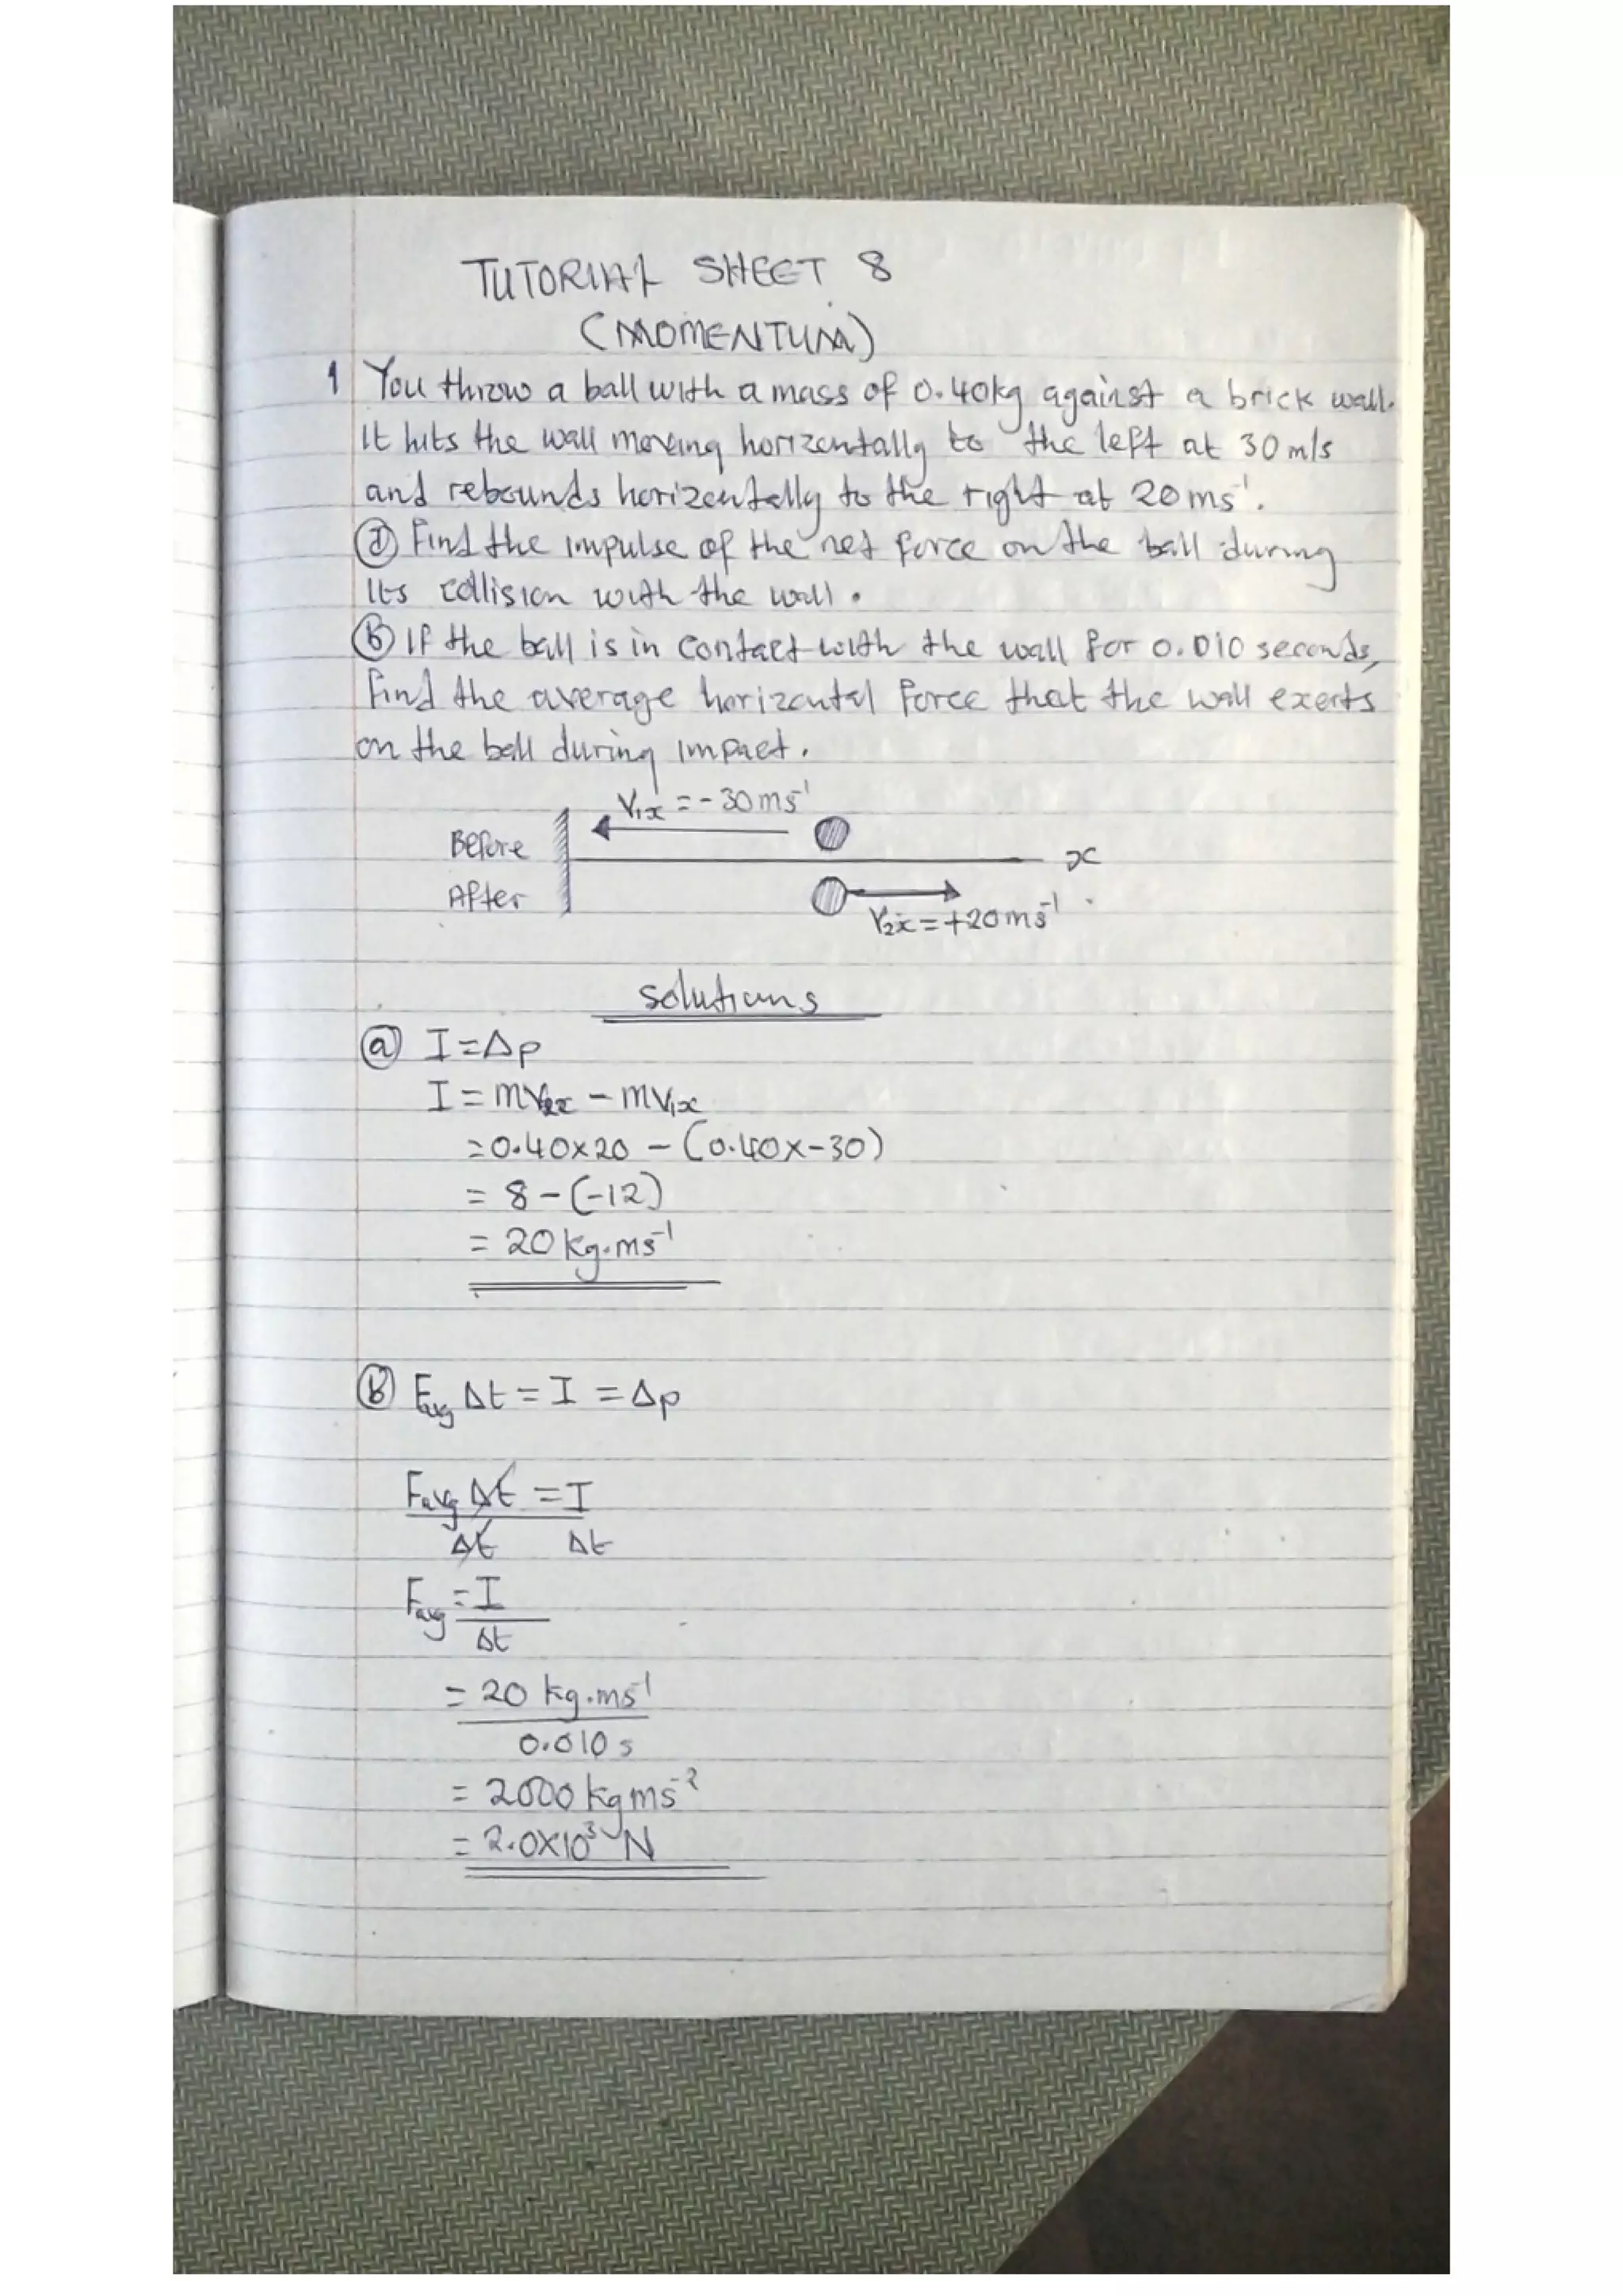 TUTORIAL SHEET 8
(MOMENTUM)
1 You throw a ball with a mass of 0.40kg against a brick wall.
It hits the wall moving horizontally to the left at 30 m/s
and rebounds horizontally to the right at 20 ms⁻¹.
ⓐ Find the impulse of the net force on the ball during
its collision with the wall.
ⓑ If the ball is in contact with the wall for 0.010 seconds,
find the average horizontal force that the wall exerts
on the ball during impact.
V₁ₓ = -30 ms⁻¹
Before
x
After
V₂ₓ = +20 ms⁻¹
Solutions
ⓐ I = Δp
I = mV₂ₓ - mV₁ₓ
= 0.40×20 - (0.40×-30)
= 8 - (-12)
= 20 kg.ms⁻¹
ⓑ Favg Δt = I = Δp
Favg Δt = I
Δt Δt
Favg = I
Δt
= 20 kg.ms⁻¹
0.010 s
= 2000 kgms⁻²
= 2.0×10³ N